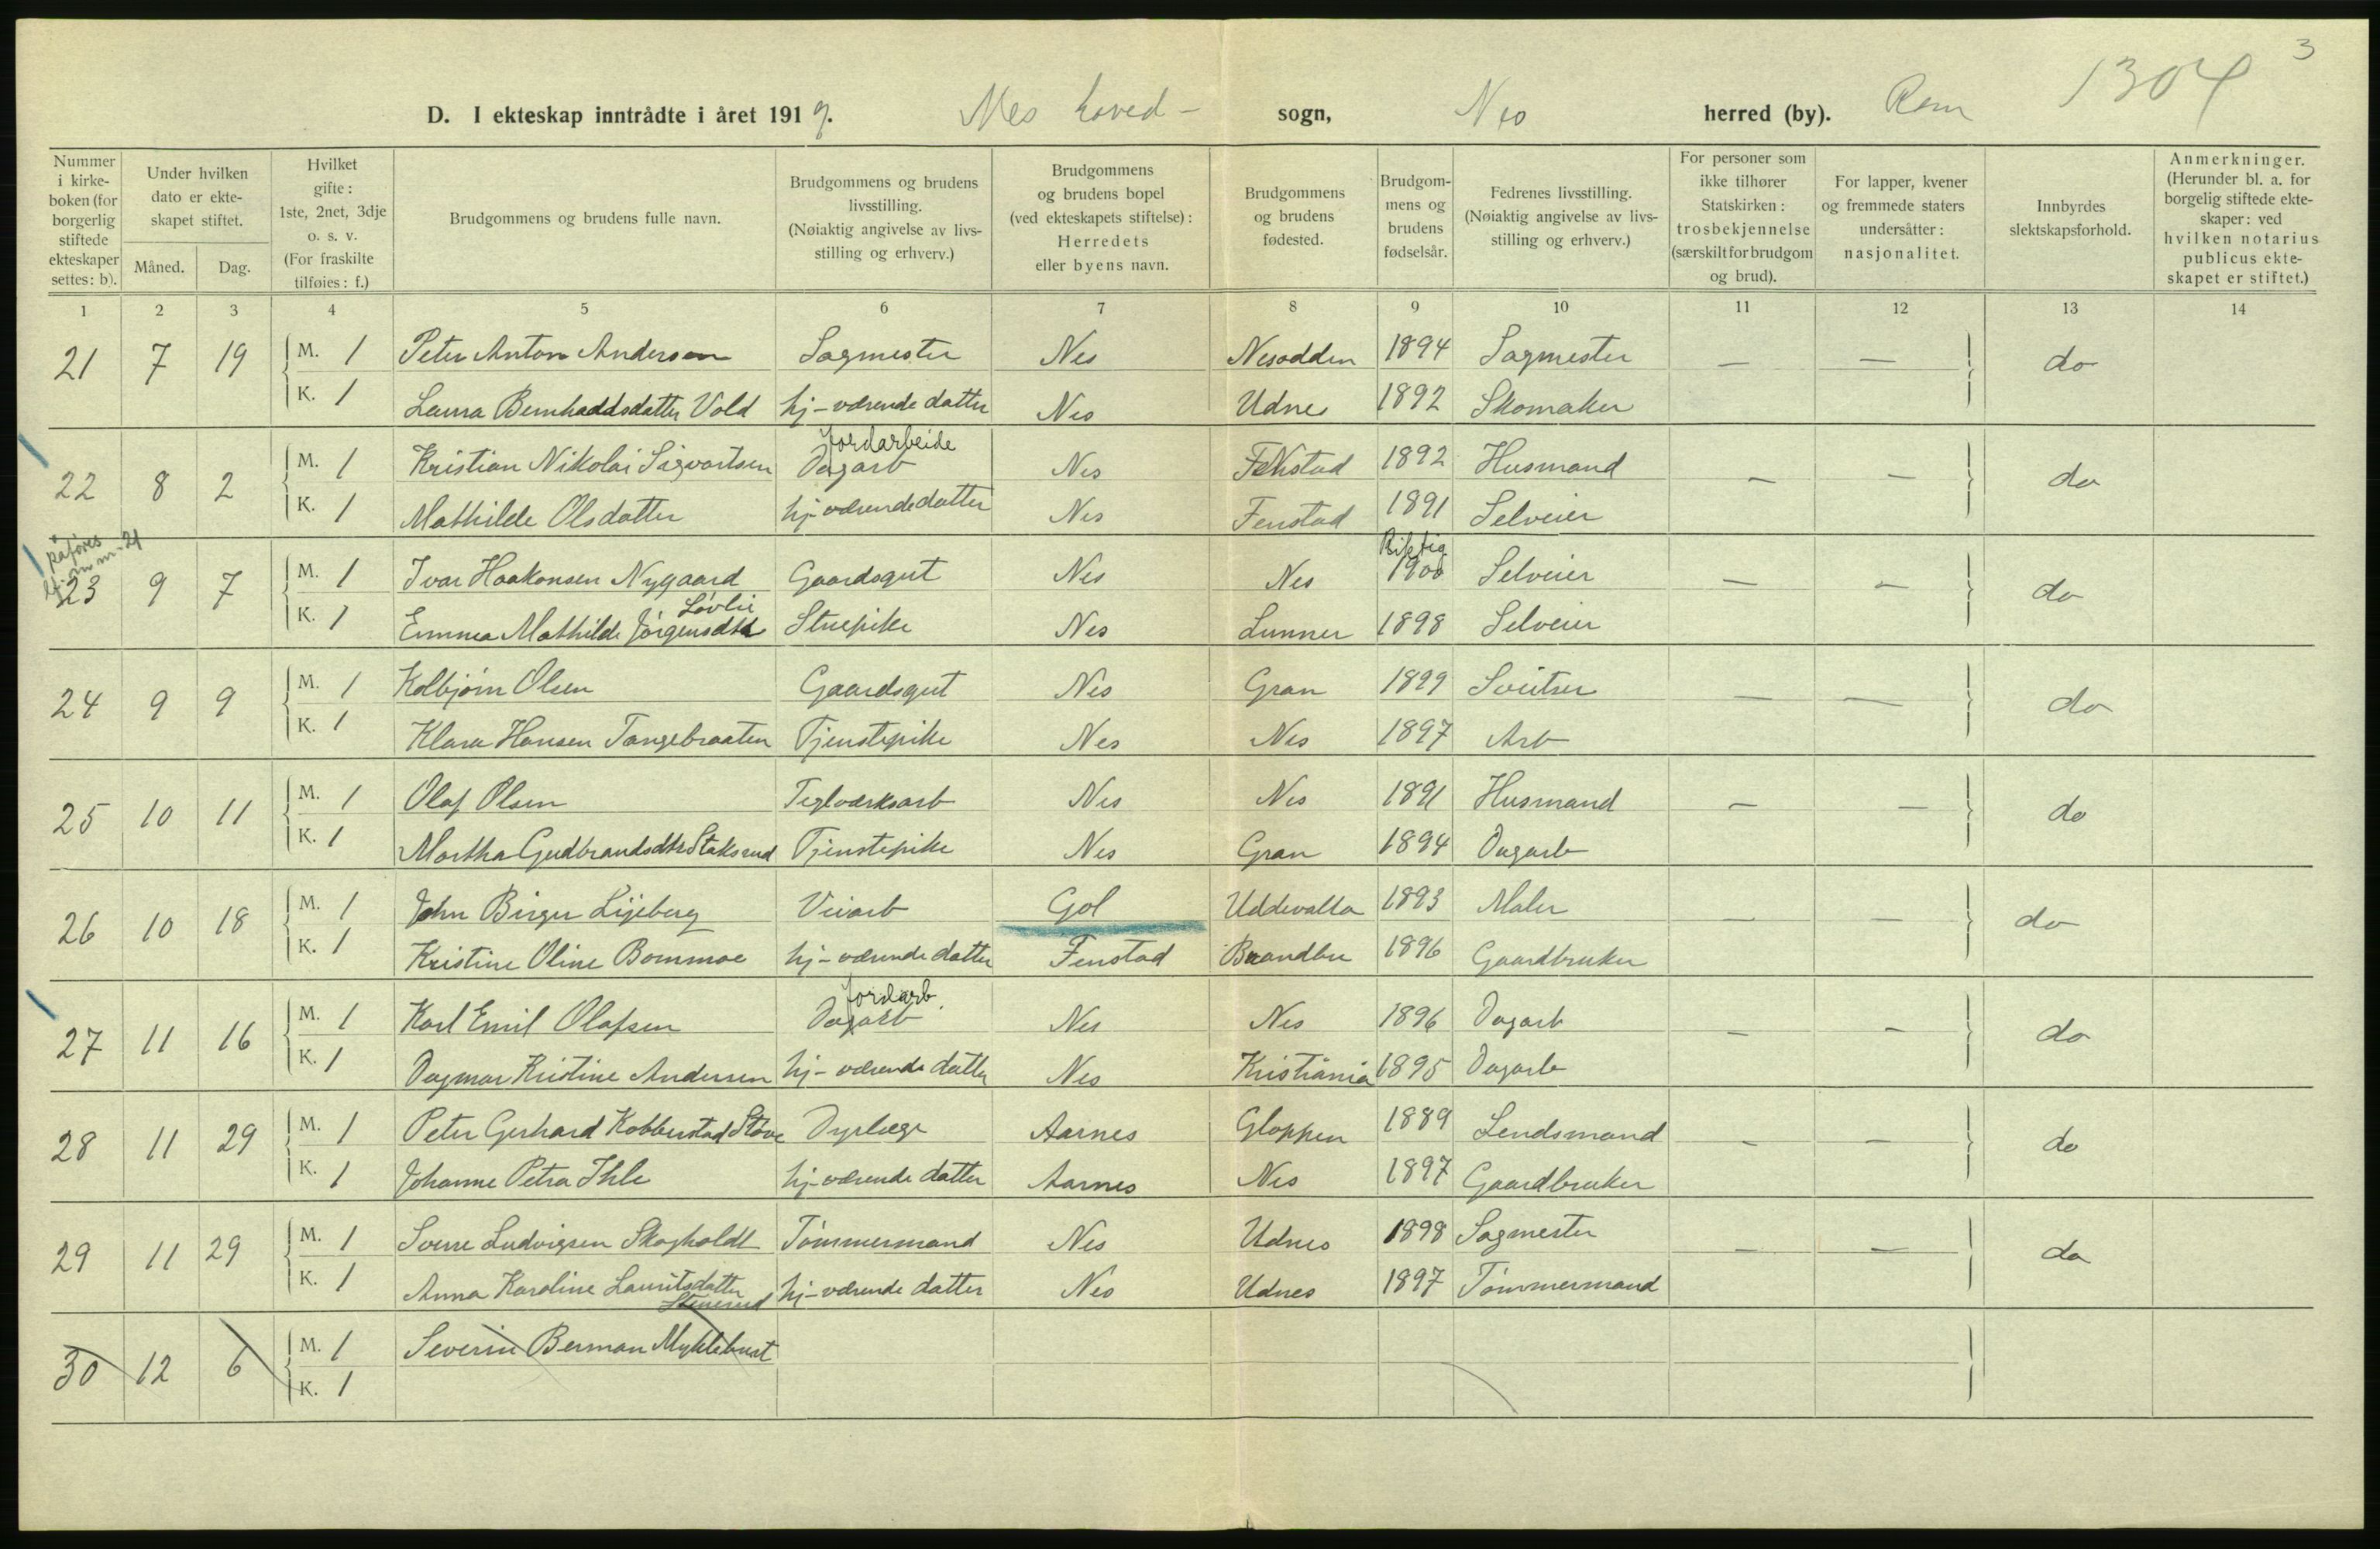 3
1304
D. I ekteskap inntrådte i året 1919. Nes hoved- sogn, Nes herred (by). Rom
Nummer i kirke-boken (for borgerlig stiftede ekteskaper settes: b).
Under hvilken dato er ekte-skapet stiftet.
Måned. Dag.
Hvilket gifte: 1ste, 2net, 3dje o. s. v. (For fraskilte tilføies: f.)
Brudgommens og brudens fulle navn.
Brudgommens og brudens livsstilling. (Nøiaktig angivelse av livs-stilling og erhverv.)
Brudgommens og brudens bopel (ved ekteskapets stiftelse): Herredets eller byens navn.
Brudgommens og brudens fødested.
Brudgom-mens og brudens fødselsår.
Fedrenes livsstilling. (Nøiaktig angivelse av livs-stilling og erhverv.)
For personer som ikke tilhører Statskirken: trosbekjennelse (særskilt for brudgom og brud).
For lapper, kvener og fremmede staters undersåtter: nasjonalitet.
Innbyrdes slektskapsforhold.
Anmerkninger. (Herunder bl. a. for borgelig stiftede ekte-skaper: ved hvilken notarius publicus ekte-skapet er stiftet.)
1 2 3 4 5 6 7 8 9 10 11 12 13 14
21 7 19 M. 1 Peter Anton Andersen Sagmester Nes Nesodden 1894 Sagmester — — do
K. 1 Laura Bernhaddsdatter Vold hj-værende datter Nes Udnes 1892 Skomaker
Jordarbeide
22 8 2 M. 1 Kristian Nikolai Sigvartsen Dagarb Nes Fenstad 1892 Husmand — — do
K. 1 Mathilde Olsdatter hj-værende datter Nes Fenstad 1891 Selveier
påføres
Riktig
23 9 7 M. 1 Ivar Haakonsen Nygaard Gaardsgut Nes Nes 1900 Selveier — — do
Løvlie
K. 1 Emma Mathilde Jörgensdtr Stuepike Nes Lunner 1898 Selveier
24 9 9 M. 1 Kolbjørn Olsen Gaardsgut Nes Gran 1899 Sveitser — — do
K. 1 Klara Hansen Tangebraaten Tjenstepike Nes Nes 1897 Arb
25 10 11 M. 1 Olaf Olsen Teglværksarb Nes Nes 1891 Husmand — — do
K. 1 Martha Gudbrandsdtr Staksrud Tjenstepike Nes Gran 1894 Dagarb
26 10 18 M. 1 John Birger Lijeberg Veiarb Gol Uddevalla 1893 Maler — — do
K. 1 Kristine Oline Bommoe hj-værende datter Fenstad Brandbu 1896 Gaardbruker
Jordarb.
27 11 16 M. 1 Karl Emil Olafsen Dagarb Nes Nes 1896 Dagarb — — do
K. 1 Dagmar Kristine Andersen hj-værende datter Nes Kristiania 1895 Dagarb
28 11 29 M. 1 Peter Gerhard Kobberstad Støve Dyrlæge Aarnes Gloppen 1889 Lendsmand — — do
K. 1 Johanne Petra Ihle hj-værende datter Aarnes Nes 1897 Gaardbruker
29 11 29 M. 1 Sverre Ludvigsen Skogholdt Tømmermand Nes Udnes 1898 Sagmester — — do
K. 1 Anna Karoline Lauritsdatter hj-værende datter Nes Udnes 1897 Tömmermand
Stenerud
30 12 6 M. 1 Severin Berman Myklebust
K. 1